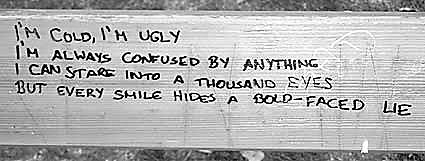 I'M COLD, I'M UGLY
I'M ALWAYS CONFUSED BY ANYTHING
I CAN STARE INTO A THOUSAND EYES
BUT EVERY SMILE HIDES A BOLD-FACED LIE